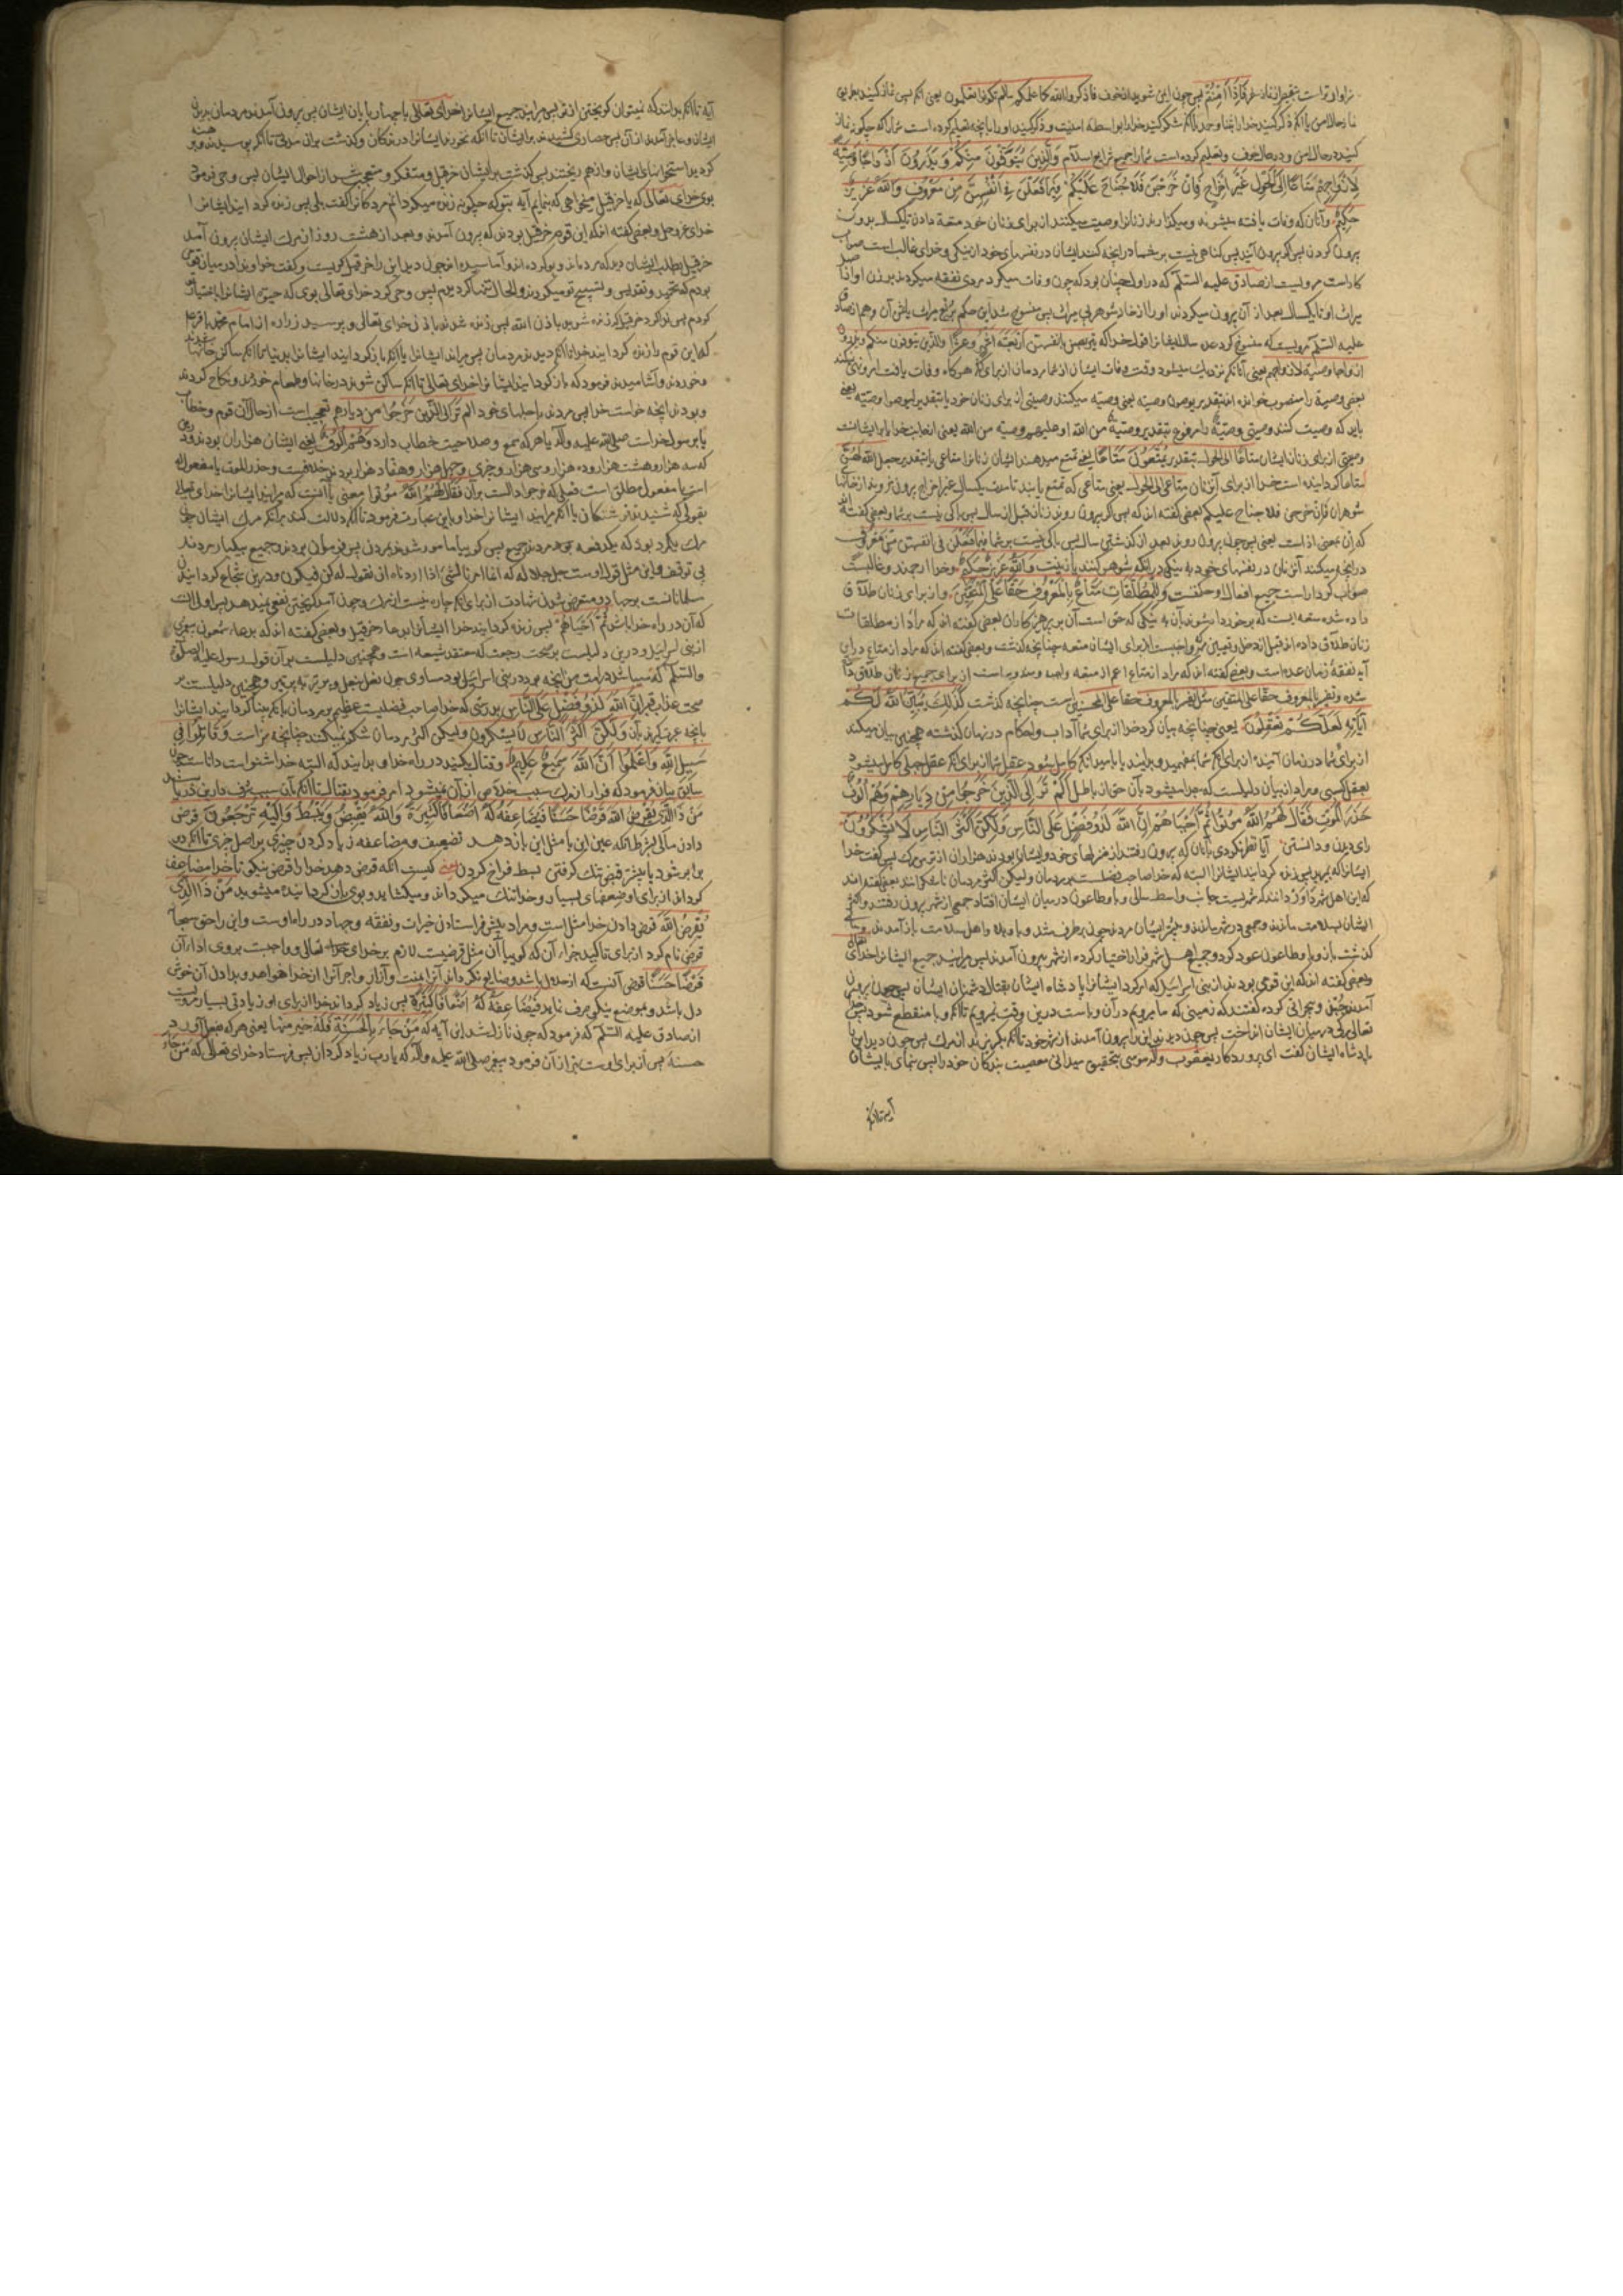 سزاوارتر است بتغییر از نماز سفر فَاِذَا اَمِنْتُمْ پس چون ایمن شوید از خوف فاذکروا الله کما علمکم ما لم تکونوا تعلمون یعنی آنکه پس نماز کنید
نماز حال امن یا آنکه ذکر کنید خدا را بثنا و حمد یا آنکه شکر کنید خدا را بواسطه امنیت و ذکر کنید او را بآنچه تعلیم کرده است شما را که چگونه نماز
کنید در حال امن و در حال خوف و تعلیم کرده است شما را جمیع شرایع اسلام وَالَّذِینَ یُتَوَفَّوْنَ مِنْکُمْ وَ یَذَرُونَ اَزْوَاجًا وَصِیَّةً
لِاَزْوَاجِهِمْ مَتَاعًا اِلَی الْحَوْلِ غَیْرَ اِخْرَاجٍ فَاِنْ خَرَجْنَ فَلَا جُنَاحَ عَلَیْکُمْ فِیمَا فَعَلْنَ فِی اَنْفُسِهِنَّ مِنْ مَعْرُوفٍ وَاللّٰهُ عَزِیزٌ
حَکِیمٌ و آنان که وفات یافته میشوند و میگذارند زنانرا وصیت میکنند از برای زنان خود متعه دادن تا یکسال بدون
بیرون کردن پس اگر بیرون آیند پس گناهی نیست بر شما در آنچه کنند ایشان در نفسهای خود از نیکی و خدای غالب است صواب
کار است مرویست از صادق علیه السلام که در اول چنان بود که چون وفات میکرد مردی نفقه میکردند بر زن او از اصل
میراث او تا یکسال بعد از آن بیرون میکردند او را از خانه شوهر بی میراث پس منسوخ شد این حکم بربع میراث یا ثمن آن و هم از صادق
علیه السلام مرویست که منسوخ کرد
ازواجا وصیة لازواجهم یعنی آنانکه نزدیک میشود وقت وفات ایشان از شما مردمان از برای آنکه هر گاه وفات یافت امر و نهی نمیکند
بعضی وصیة را منصوب خوانده اند بتقدیر یوصون وصیة یعنی وصیة میکنند وصیتی از برای زنان خود یا بتقدیر لیوصوا وصیة یعنی
باید که وصیت کنند وصیتی و وصیةٌ را مرفوع بتقدیر وصیة من الله او علیهم وصیة من الله یعنی
وصیتی از برای زنان ایشان متاعًا الی الحول بتقدیر یُمَتِّعُونَ مَتَاعًا یعنی تمتع میدهند ایشان زنانرا متاعی یا بتقدیر جعل الله لهنّ
متاعا گردانیده است خدا از برای آن زنان متاعی الی الحول یعنی متاعی که تمتع یابند تا مدت یکسال غیر اخراج بیرون نروند از خانهای
شوهران فان خرجن فلا جناح علیکم بعضی گفته اند که پس اگر بیرون روند زنان قبل از سال پس باکی نیست بر شما و بعضی گفته اند
که ان بمعنی اذا است یعنی پس چون بیرون روند بعد از گذشتن سال پس باکی نیست بر شما فیما فَعَلْنَ فی انفسهن من مَعْرُوفٍ
در آنچه میکنند آن زنان در نفسهای خود به نیکی در آنکه شوهر کنند یا زینت وَاللّٰهُ عَزِیزٌ حَکِیمٌ و خدا ارجمند و غالبست
صواب کردار است جمیع افعال او حکمت وَلِلْمُطَلَّقَاتِ مَتَاعٌ بِالْمَعْرُوفِ حَقًّا عَلَی الْمُتَّقِینَ و از برای زنان طلاق
داده شده متعه ایست که برخوردار شوند بآن به نیکی که حق است آن بر پرهیزکاران بعضی گفته اند که مراد از مطلقات
زنان طلاق داده اند قبل از دخل و تعیین مهر و واجبست از برای ایشان متعه چنانچه گذشت و بعضی گفته اند که مراد از متاع در این
آیه نفقه زمان عده است و بعضی گفته اند که مراد از متاع اعم از متعه واجبه و مندوبه است از برای جمیع زنان طلاق داده
شده و تفسیر بالمعروف حقا علی المتقین مثل تفسیر بالمعروف حقا علی المحسنین است چنانچه گذشت کَذٰلِکَ یُبَیِّنُ اللّٰهُ لَکُمْ
آیَاتِهِ لَعَلَّکُمْ تَعْقِلُونَ یعنی چنانچه بیان کرد خدا از برای شما آداب و احکام در زمان گذشته همچنین بیان میکند
از برای شما در زمان آینده از برای آنکه شما بفهمید و بدانید یا بامید آنکه کامل شود عقل شما از برای آنکه عقل جبلی کامل میشود
بعقل کسبی و مراد از بیان دلیلست که جدا میشود بآن حق از باطل اَلَمْ تَرَ اِلَی الَّذِینَ خَرَجُوا مِنْ دِیَارِهِمْ وَهُمْ اُلُوفٌ
حَذَرَ الْمَوْتِ فَقَالَ لَهُمُ اللّٰهُ مُوتُوا ثُمَّ اَحْیَاهُمْ اِنَّ اللّٰهَ لَذُو فَضْلٍ عَلَی النَّاسِ وَلٰکِنَّ اَکْثَرَ النَّاسِ لَا یَشْکُرُونَ
رای دیدن و دانستن آیا نظر نکردی بآنان که بیرون رفتند از منزلهای خود و ایشان بودند هزاران از ترس مرگ پس گفت خدا
ایشانرا که بمیرید پس زنده گردانید ایشانرا البته که خدا صاحب فضلست بر مردمان ولیکن اکثر مردمان ناشکرانند بعضی گفته اند
که این اهل شهر داوردانند که شهریست جانب واسط و طاعون در میان ایشان افتاد جمعی از شهر بیرون رفتند و اکثر
ایشان بسلامت ماندند و جمعی در شهر ماندند و بیشتر ایشان مردند چون برطرف شد وبا و بلا و اهل سلامت باز آمدند
گذشت باز وبا و طاعون عود کرد و جمیع اهل شهر فرار اختیار کرده از شهر بیرون آمدند پس میرانید جمیع ایشانرا خدای تعالی
و بعضی گفته اند که این قومی بودند از بنی اسرائیل که امر کرد ایشانرا پادشاه ایشان بقتال دشمنان ایشان پس چون بیرون
آمدند جبن و بی جراتی کرده گفتند که زمینی که ما میرویم در آن وباست درین وقت نمیرویم تا آنکه وبا منقطع شود پس
تعالی مرگی در میان ایشان انداخت پس چون دیدند این را بیرون آمدند از شهر خود تا آنکه بگریزند از مرگ پس چون دید این را
پادشاه ایشان گفت ای پروردگار یعقوب و اله موسی بتحقیق میدانی معصیت بندگان خود را پس بنمای بایشان
آیه تا آنکه
آیه تا آنکه بدانند که نمیتوان گریختن از تو پس میرانید جمیع ایشانرا خدای تعالی با چهارپایان ایشان پس بیرون آمدند مردمان بدیدن
ایشان و عاجز آمدند از آن پس حصاری کشیدند بر ایشان تا آنکه نخورند ایشانرا درندگان و گذشت بر آن مدتی تا آنکه پوسیدند
گردید استخوانهای ایشان و از هم ریختند پس گذشت بر ایشان حزقیل و متفکر و متعجب شد از احوال ایشان پس وحی فرمود
بوی خدای تعالی که یا حزقیل میخواهی که بنمایم آیه بتو که چگونه زنده میگردانم مردگانرا گفت بلی پس زنده گردانید ایشانرا
خدای عز و جل و بعضی گفته اند که این قوم حزقیل بودند که بیرون آمدند و بعد از هشت روز از مرگ ایشان بیرون آمد
حزقیل بطلب ایشان دید که مرده اند چون دید این را حزقیل گریست و گفت خداوندا در میان قومی
بودم که تحمید و تقدیس و تسبیح تو میکردند و الحال تنها گردیدم پس وحی کرد خدای تعالی بوی که حیوة ایشانرا باختیار تو
کردم پس ندا کرد حزقیل که زنده شوید باذن الله پس زنده شدند باذن خدای تعالی و پرسید زراره از امام محمد باقر
که این قوم را زنده گردانید خدا تا آنکه دیدند مردمان پس میراند ایشانرا یا آنکه باز گردانید ایشانرا بدنیا تا آنکه ساکن خانها شدند
و خوردند و آشامیدند فرمود که باز گردانید ایشانرا خدای تعالی تا آنکه ساکن شدند در خانها و طعام خوردند و نکاح کردند
و بودند آنچه خدا خواست پس مردند باجلهای خود الم تَرَ اِلَی الَّذِینَ خَرَجُوا مِنْ دِیَارِهِم تعجیب است از حال آن قوم و خطاب
یا برسول خداست صلی الله علیه و آله یا هر که سمع و صلاحیت خطاب دارد وَهُمْ اُلُوفٌ یعنی ایشان هزاران بودند
که سه هزار و هشت هزار و ده هزار و سی هزار و چیزی و چهل هزار و هفتاد هزار بودند خلافیست و حذر الموت یا مفعول له
است یا مفعول مطلق است فعلی که خرجوا دالست بر آن فَقَالَ لَهُمُ اللّٰهُ مُوتُوا معنی یا آنست که میرانید ایشانرا خدای تعالی
بقولی که شنیدند فرشتگان یا آنکه میرانید ایشانرا خدا و باین عبارت فرمود تا آنکه دلالت کند بر آنکه مرگ ایشان چون
مرگ یک مرد بود که یکدفعه مردند جمیع پس گوییا مامور شدند بمردن پس فرمان بردند و جمیع بیکبار مردند
بی توقف و این مثل قول اوست جل جلاله که انما امرنا لشیء اذا اردناه ان نقول له کن فیکون و درین شجاع گردانیدن
مسلمانانست بر جهاد و متعرض شدن شهادت از برای آنکه چاره نیست از مرگ و چون آمد گریختن نفعی نمیدهد
که آن در راه خدا باشد ثُمَّ اَحْیَاهُمْ پس زنده گردانید خدا ایشانرا بدعاء حزقیل و بعضی گفته اند که بدعاء شمعون پیغمبری
از بنی اسرائیل و درین دلیلیست بر صحت رجعت که معتقد شیعه است و همچنین دلیلست بر آن قول رسول علیه الصلوة
والسلام که میباشد در امت من آنچه بود در بنی اسرائیل مساوی چون نعل بنعل و پر تیر به پر تیر و همچنین دلیلست بر
صحت عذاب قبر اِنَّ اللّٰهَ لَذُو فَضْلٍ عَلَی النَّاسِ بدرستی که خدا صاحب فضلیست عظیم بر مردمان بآنکه بینا گردانید ایشانرا
بآنچه عبرت گیرند بآن وَلٰکِنَّ اَکْثَرَ النَّاسِ لَا یَشْکُرُونَ ولیکن اکثر مردمان شکر نمیکنند چنانچه سزاست وَقَاتِلُوا فِی
سَبِیلِ اللّٰهِ وَاعْلَمُوا اَنَّ اللّٰهَ سَمِیعٌ عَلِیمٌ و قتال کنید در راه خدا و بدانید که البته خدا شنواست داناست چون
سابق بیان فرمود که فرار از مرگ سبب خلاص از آن نمیشود امر فرمود بقتال تا آنکه بآن سبب شرف دارین دریابند
مَنْ ذَا الَّذِی یُقْرِضُ اللّٰهَ قَرْضًا حَسَنًا فَیُضَاعِفَهُ لَهُ اَضْعَافًا کَثِیرَةً وَاللّٰهُ یَقْبِضُ وَیَبْسُطُ وَاِلَیْهِ تُرْجَعُونَ قرض
دادن مالی بشرط آنکه عین این یا مثل این باز دهد تضعیف و مضاعفه زیاد کردن چیزی بر اصل چیزی تا آنکه دو
برابر شود یا بیشتر قبض تنگ گرفتن بسط فراخ کردن یعنی کیست آنکه قرض دهد خدا را قرض نیکی تا خدا مضاعف
گرداند از برای او ضعفهای بسیار و خدا تنگ میگرداند و میگشاید و بوی باز گردانیده میشوید مَنْ ذَا الَّذِی
یُقْرِضُ اللّٰهَ قرض دادن خدا مثل است و مراد پیش فرستادن خیرات و نفقه و جهاد در راه اوست و این را حق سبحانه
قرض نام کرد از برای تاکید جزاء آن که گوییا آن مثل قرضیست لازم بر خدای تعالی و واجبست بر وی اداء آن
قَرْضًا حَسَنًا قرض آنست که از حلال باشد و ضایع نگرداند آنرا بمنت و آزار و اجر آنرا از خدا خواهد و بدادن آن خوش
دل باشد و بموضع نیکی صرف نماید فَیُضَاعِفَهُ لَهُ اَضْعَافًا کَثِیرَةً پس زیاد گرداند خدا از برای او زیادتی بسیار مرویست
از صادق علیه السلام که فرمود که چون نازل شد این آیه که مَنْ جَاءَ بِالْحَسَنَةِ فَلَهُ خیر منها یعنی هر که
حسنه پس از برای اوست بهتر از آن فرمود پیغمبر صلی الله علیه و آله که یا رب زیاد گردان پس فرستاد خدای تعالی که مَنْ جَاءَ